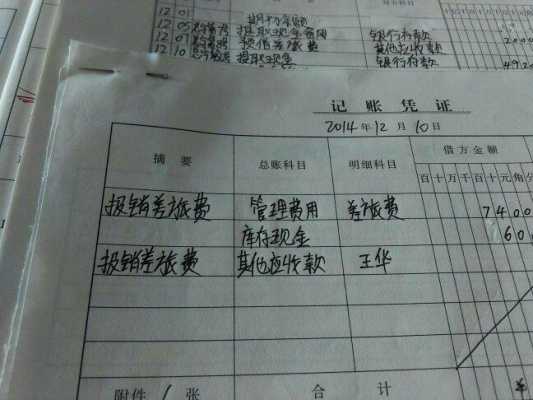 12 01
12 05 提取现金备用 银行存款
12 07 预借差旅费 其他应收款 2000
12 10 提取现金 银行存款 4920
记账凭证
2014年12月10日
摘要 总账科目 明细科目 借方金额
百十万千百十元角分
报销差旅费 管理费用 差旅费 7400
库存现金 600
报销差旅费 其他应收款 王华
附件 1 张 合计 ¥